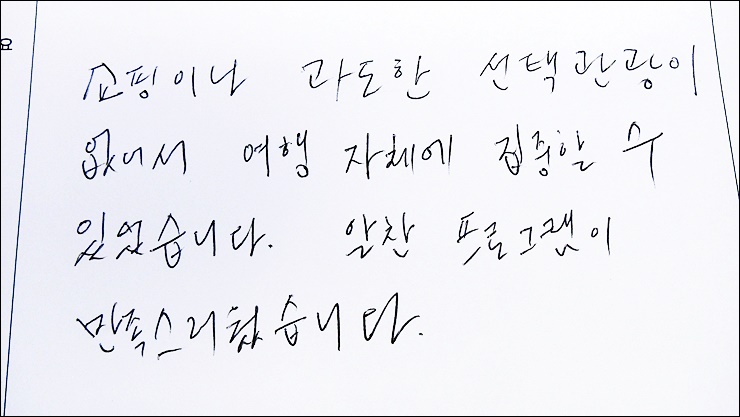 요
쇼핑이나 과도한 선택관광이
없어서 여행 자체에 집중할 수
있었습니다. 알찬 프로그램이
만족스러웠습니다.